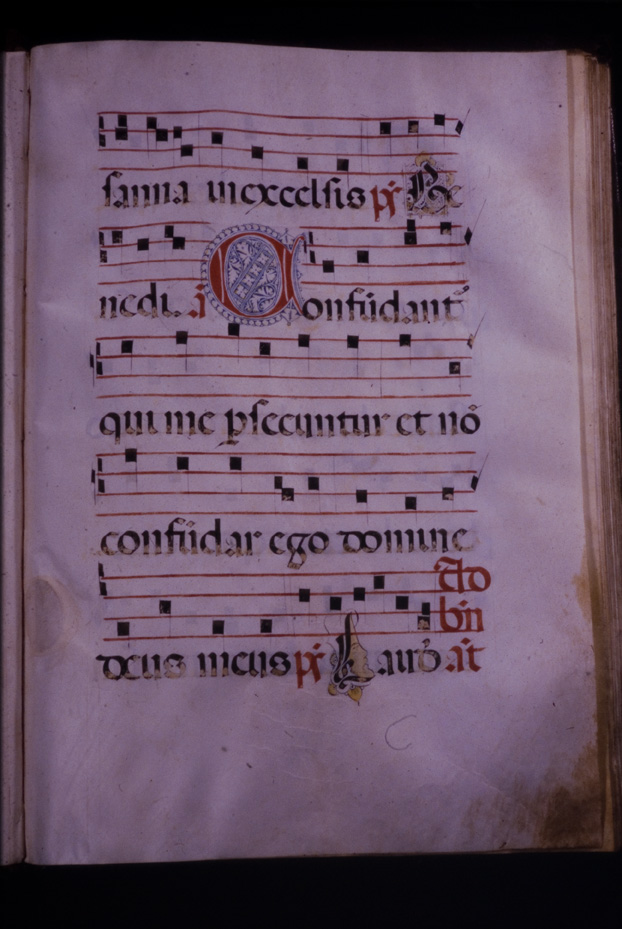 sanna inexcelsis ps Be
nedi. a Confūdant᷑
qui me ꝑsecuntur et nō
confūdar ego domine
deus meus ps Laud
Ad
bn̄
at